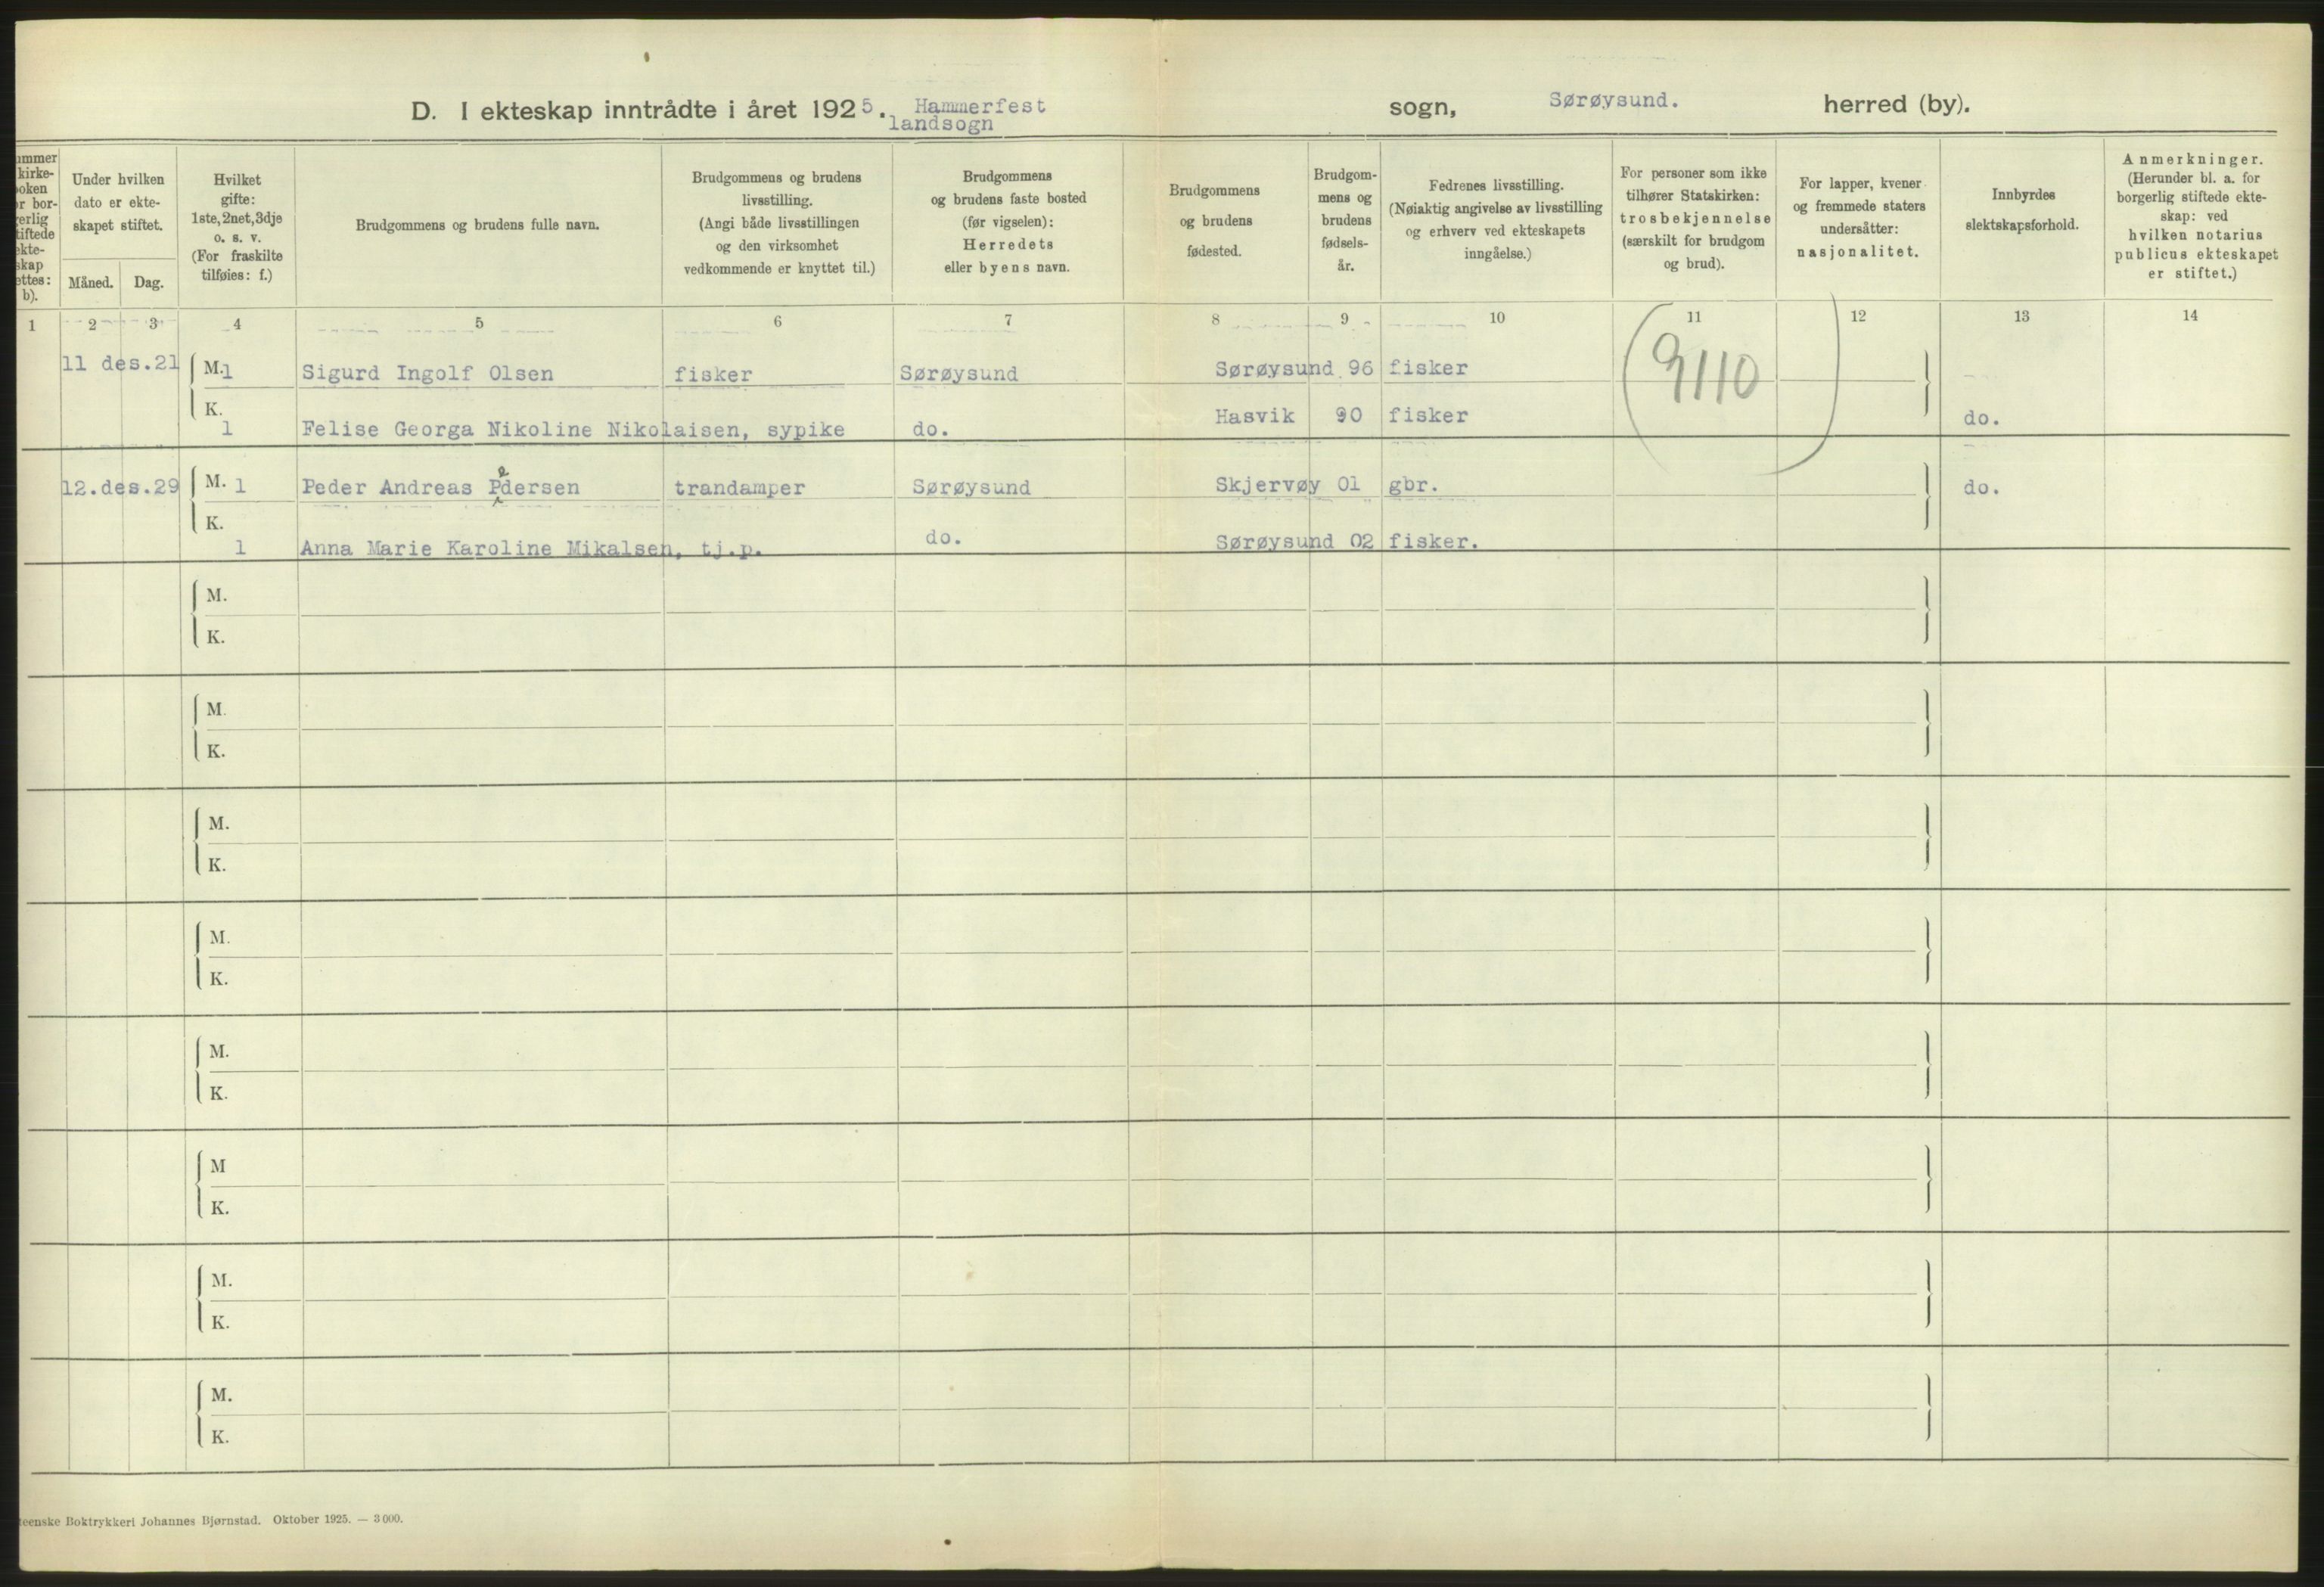 D. I ekteskap inntrådte i året 1925. Hammerfest landsogn sogn, Sørøysund. herred (by).
ummer
kirke-
oken
r bor-
erlig
tiftede
ekte-
skap
ettes:
b).
Under hvilken
dato er ekte-
skapet stiftet.
Måned. Dag.
Hvilket
gifte:
1ste, 2net, 3dje
o. s. v.
(For fraskilte
tilføies: f.)
Brudgommens og brudens fulle navn.
Brudgommens og brudens
livsstilling.
(Angi både livsstillingen
og den virksomhet
vedkommende er knyttet til.)
Brudgommens
og brudens faste bosted
(før vigselen):
Herredets
eller byens navn.
Brudgommens
og brudens
fødested.
Brudgom-
mens og
brudens
fødsels-
år.
Fedrenes livsstilling.
(Nøiaktig angivelse av livsstilling
og erhverv ved ekteskapets
inngåelse.)
For personer som ikke
tilhører Statskirken:
trosbekjennelse
(særskilt for brudgom
og brud).
For lapper, kvener
og fremmede staters
undersåtter:
nasjonalitet.
Innbyrdes
slektskapsforhold.
Anmerkninger.
(Herunder bl. a. for
borgerlig stiftede ekte-
skap: ved
hvilken notarius
publicus ekteskapet
er stiftet.)
1 2 3 4 5 6 7 8 9 10 11 12 13 14
11 des.21 M. 1 Sigurd Ingolf Olsen fisker Sørøysund Sørøysund 96 fisker
9110
K. 1 Felise Georga Nikoline Nikolaisen, sypike do. Hasvik 90 fisker do.
12.des.29 M. 1 Peder Andreas Pedersen trandamper Sørøysund Skjervøy 01 gbr. do.
K. 1 Anna Marie Karoline Mikalsen, tj.p. do. Sørøysund 02 fisker.
M.
K.
M.
K.
M.
K.
M.
K.
M.
K.
M
K.
M.
K.
M.
K.
eenske Boktrykkeri Johannes Bjørnstad. Oktober 1925. — 3 000.